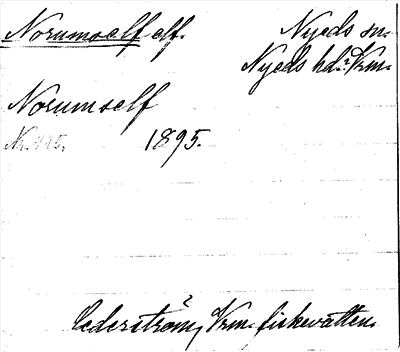 Norumselfelf. Nyeds sn.
Nyeds hd. Vrm.
Norumself
Nr. 445. 1895.
Cederström, Vrm. fiskevatten.